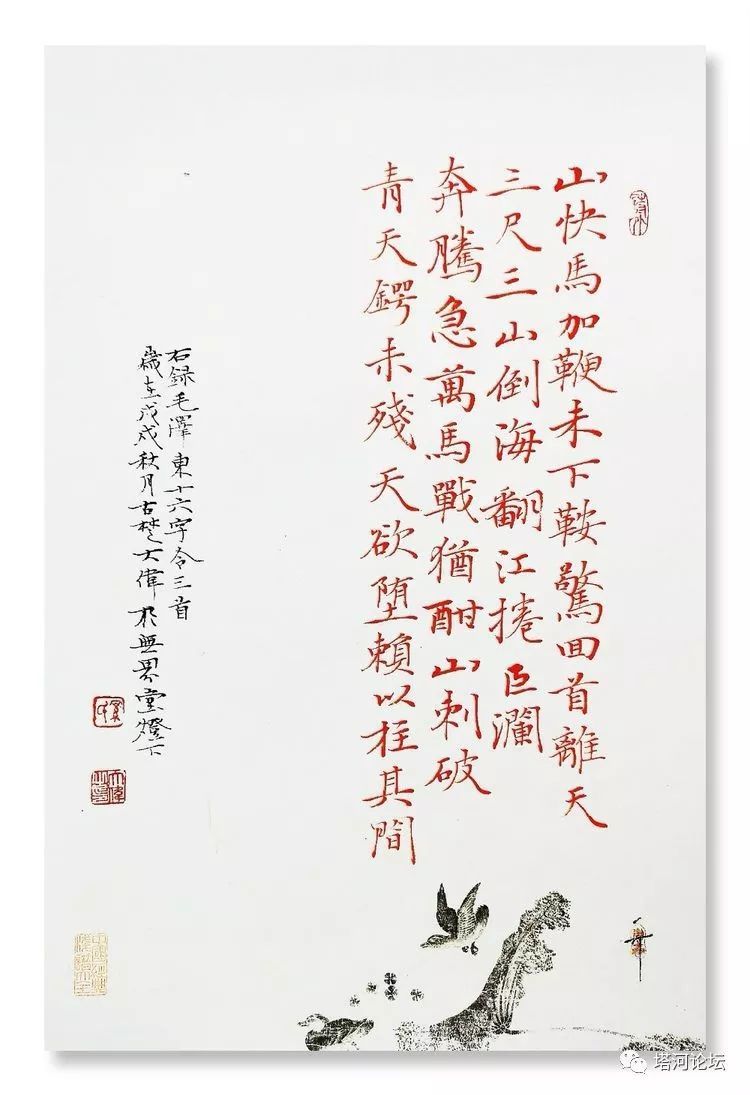 山快馬加鞭未下鞍驚回首離天
三尺三山倒海翻江捲巨瀾
奔騰急萬馬戰猶酣山刺破
青天鍔未殘天欲堕賴以柱其間
右録毛澤東十六字令三首
歲在戊戌秋月古楚大偉於無界堂燈下
塔河论坛